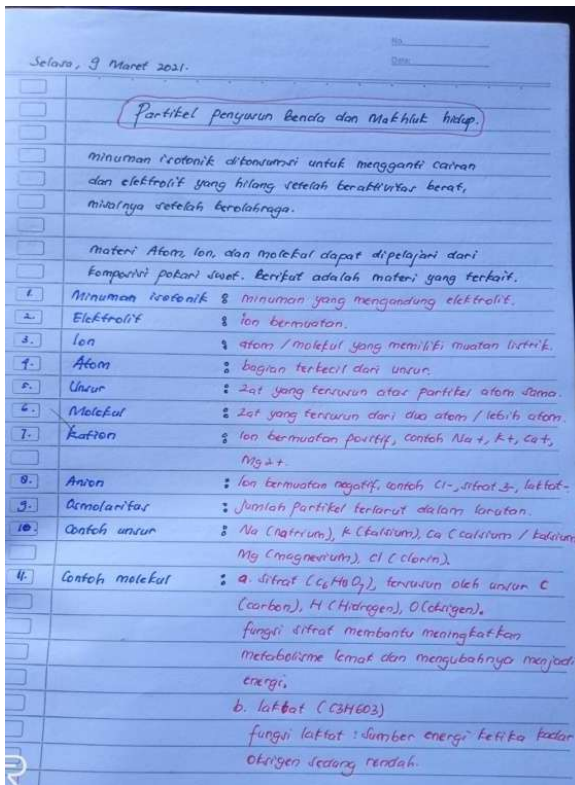 No.
Date:
Selasa, 9 Maret 2021.
Partikel penyusun Benda dan Makhluk hidup.
minuman isotonik dikonsumsi untuk mengganti cairan
dan elektrolit yang hilang setelah beraktivitas berat,
misalnya setelah berolahraga.
materi Atom, Ion, dan molekul dapat dipelajari dari
komposisi pokari sweet. Berikut adalah materi yang terkait.
1. Minuman isotonik : minuman yang mengandung elektrolit.
2. Elektrolit : ion bermuatan.
3. Ion : atom / molekul yang memiliki muatan listrik.
4. Atom : bagian terkecil dari unsur.
5. Unsur : zat yang tersusun atas partikel atom sama.
6. Molekul : zat yang tersusun dari dua atom / lebih atom.
7. Kation : Ion bermuatan positif, contoh Na+, K+, Ca+,
Mg2+.
8. Anion : Ion bermuatan negatif, contoh Cl-, sitrat 3-, laktat-
9. Osmolaritas : Jumlah partikel terlarut dalam larutan.
10. Contoh unsur : Na (natrium), K (kalsium), Ca (calsium / kalsium
Mg (magnesium), Cl (clorin).
11. Contoh molekul : a. Sitrat (C6H8O7), tersusun oleh unsur C
(carbon), H (Hidrogen), O (oksigen).
fungsi sitrat membantu meningkatkan
metabolisme lemak dan mengubahnya menjadi
energi.
b. laktat (C3H6O3)
fungsi laktat : Sumber energi ketika kadar
oksigen sedang rendah.